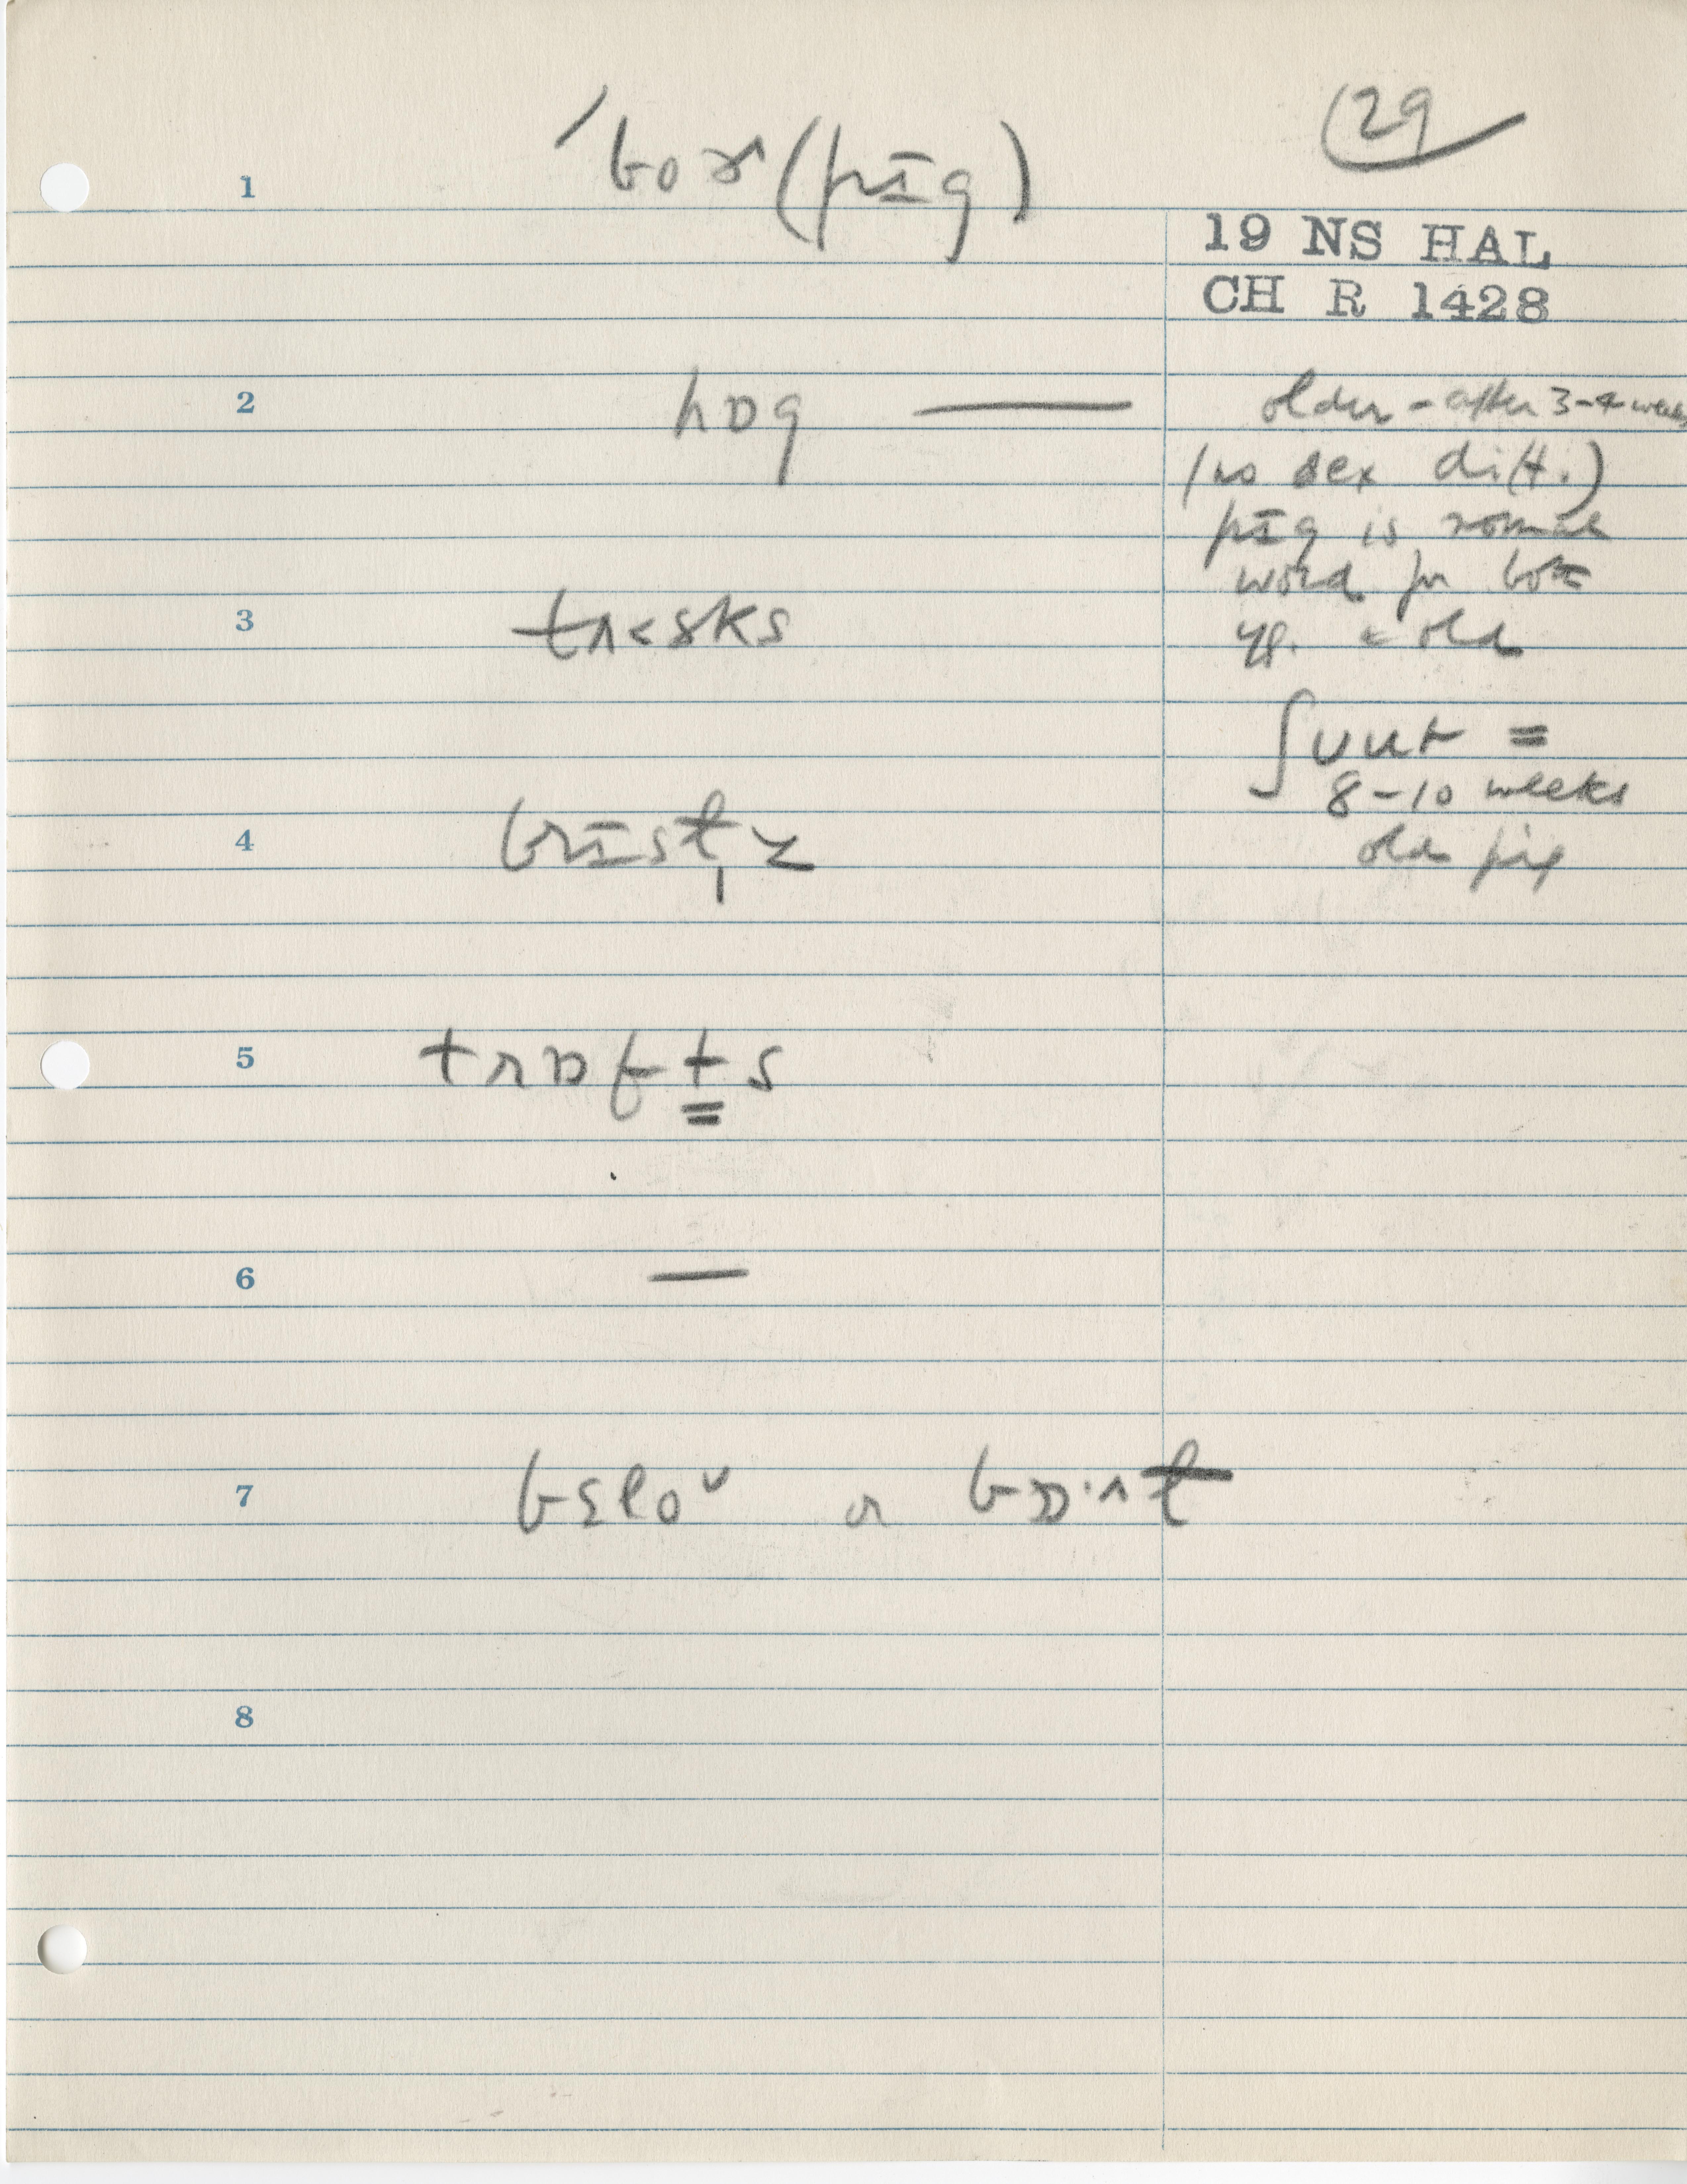 29
1 ˈboɚ (pɪg)
19 NS HAL
CH R 1428
2 hɒg — older - after 3-4 weeks
(no sex diff.)
pɪg is normal
word for both
yg. & old
3
ʃuut =
8-10 weeks
old pig
4 brɪstl̩z
5 trɒfts
6 —
7 or
8